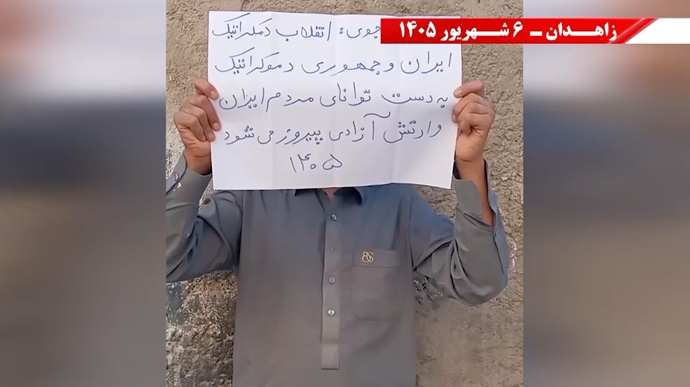 زاهـدان ـ ۶ شهریور ۱۴۰۵
جوی: انقلاب دمکراتیک
ایران و جمهوری دموکراتیک
به دست توانای مردم ایران
و ارتش آزادی پیروز می شود
۱۴۰۵